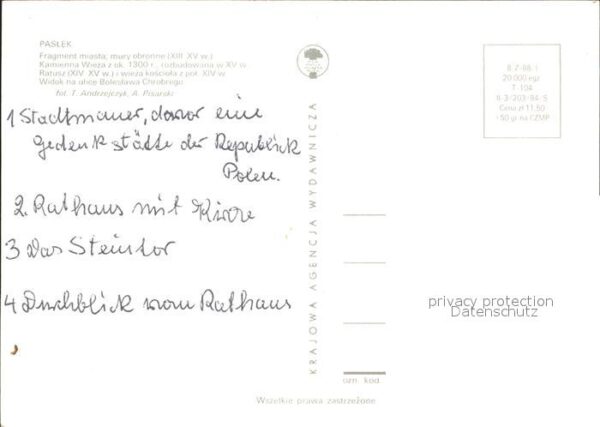 PASŁĘK
Fragment miasta, mury obronne (XIII XV w.)
Kamienna Wieża z ok. 1300 r., rozbudowana w XV w.
Ratusz (XIV XV w.) i wieża kościoła z poł. XIV w.
Widok na ulicę Bolesława Chrobrego
fot. T. Andrzejczyk, A. Pisarski
1 Stadtmauer, davor eine
Gedenkstätte der Republick
Polen.
2. Rathaus mit Kirche
3 Das Steintor
4 Durchblick vom Rathaus
KRAJOWA AGENCJA WYDAWNICZA
20 000 egz.
T-104
II-3-203/84-5
Cena zł 11,50
50 gr na CZMP
privacy protection
Datenschutz
ozn. kod.
Wszelkie prawa zastrzeżone